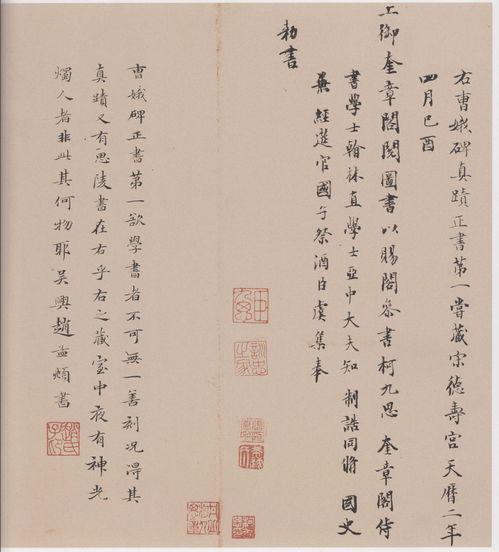 右曹娥碑真蹟正書第一嘗藏宗德壽宮天曆二年
四月己酉
上御奎章閣閱圖書以賜閣參書柯九思奎章閣侍
書學士翰林直學士亞中大夫知 制誥同脩 國史
兼經筵官國子祭酒臣虞集奉
勑書
曹娥碑正書第一欲學書者不可無一善刻況得其
真蹟又有思陵書在右乎右之藏室中夜有神光
燭人者非此其何物耶吳興趙孟頫書
趙氏子昂